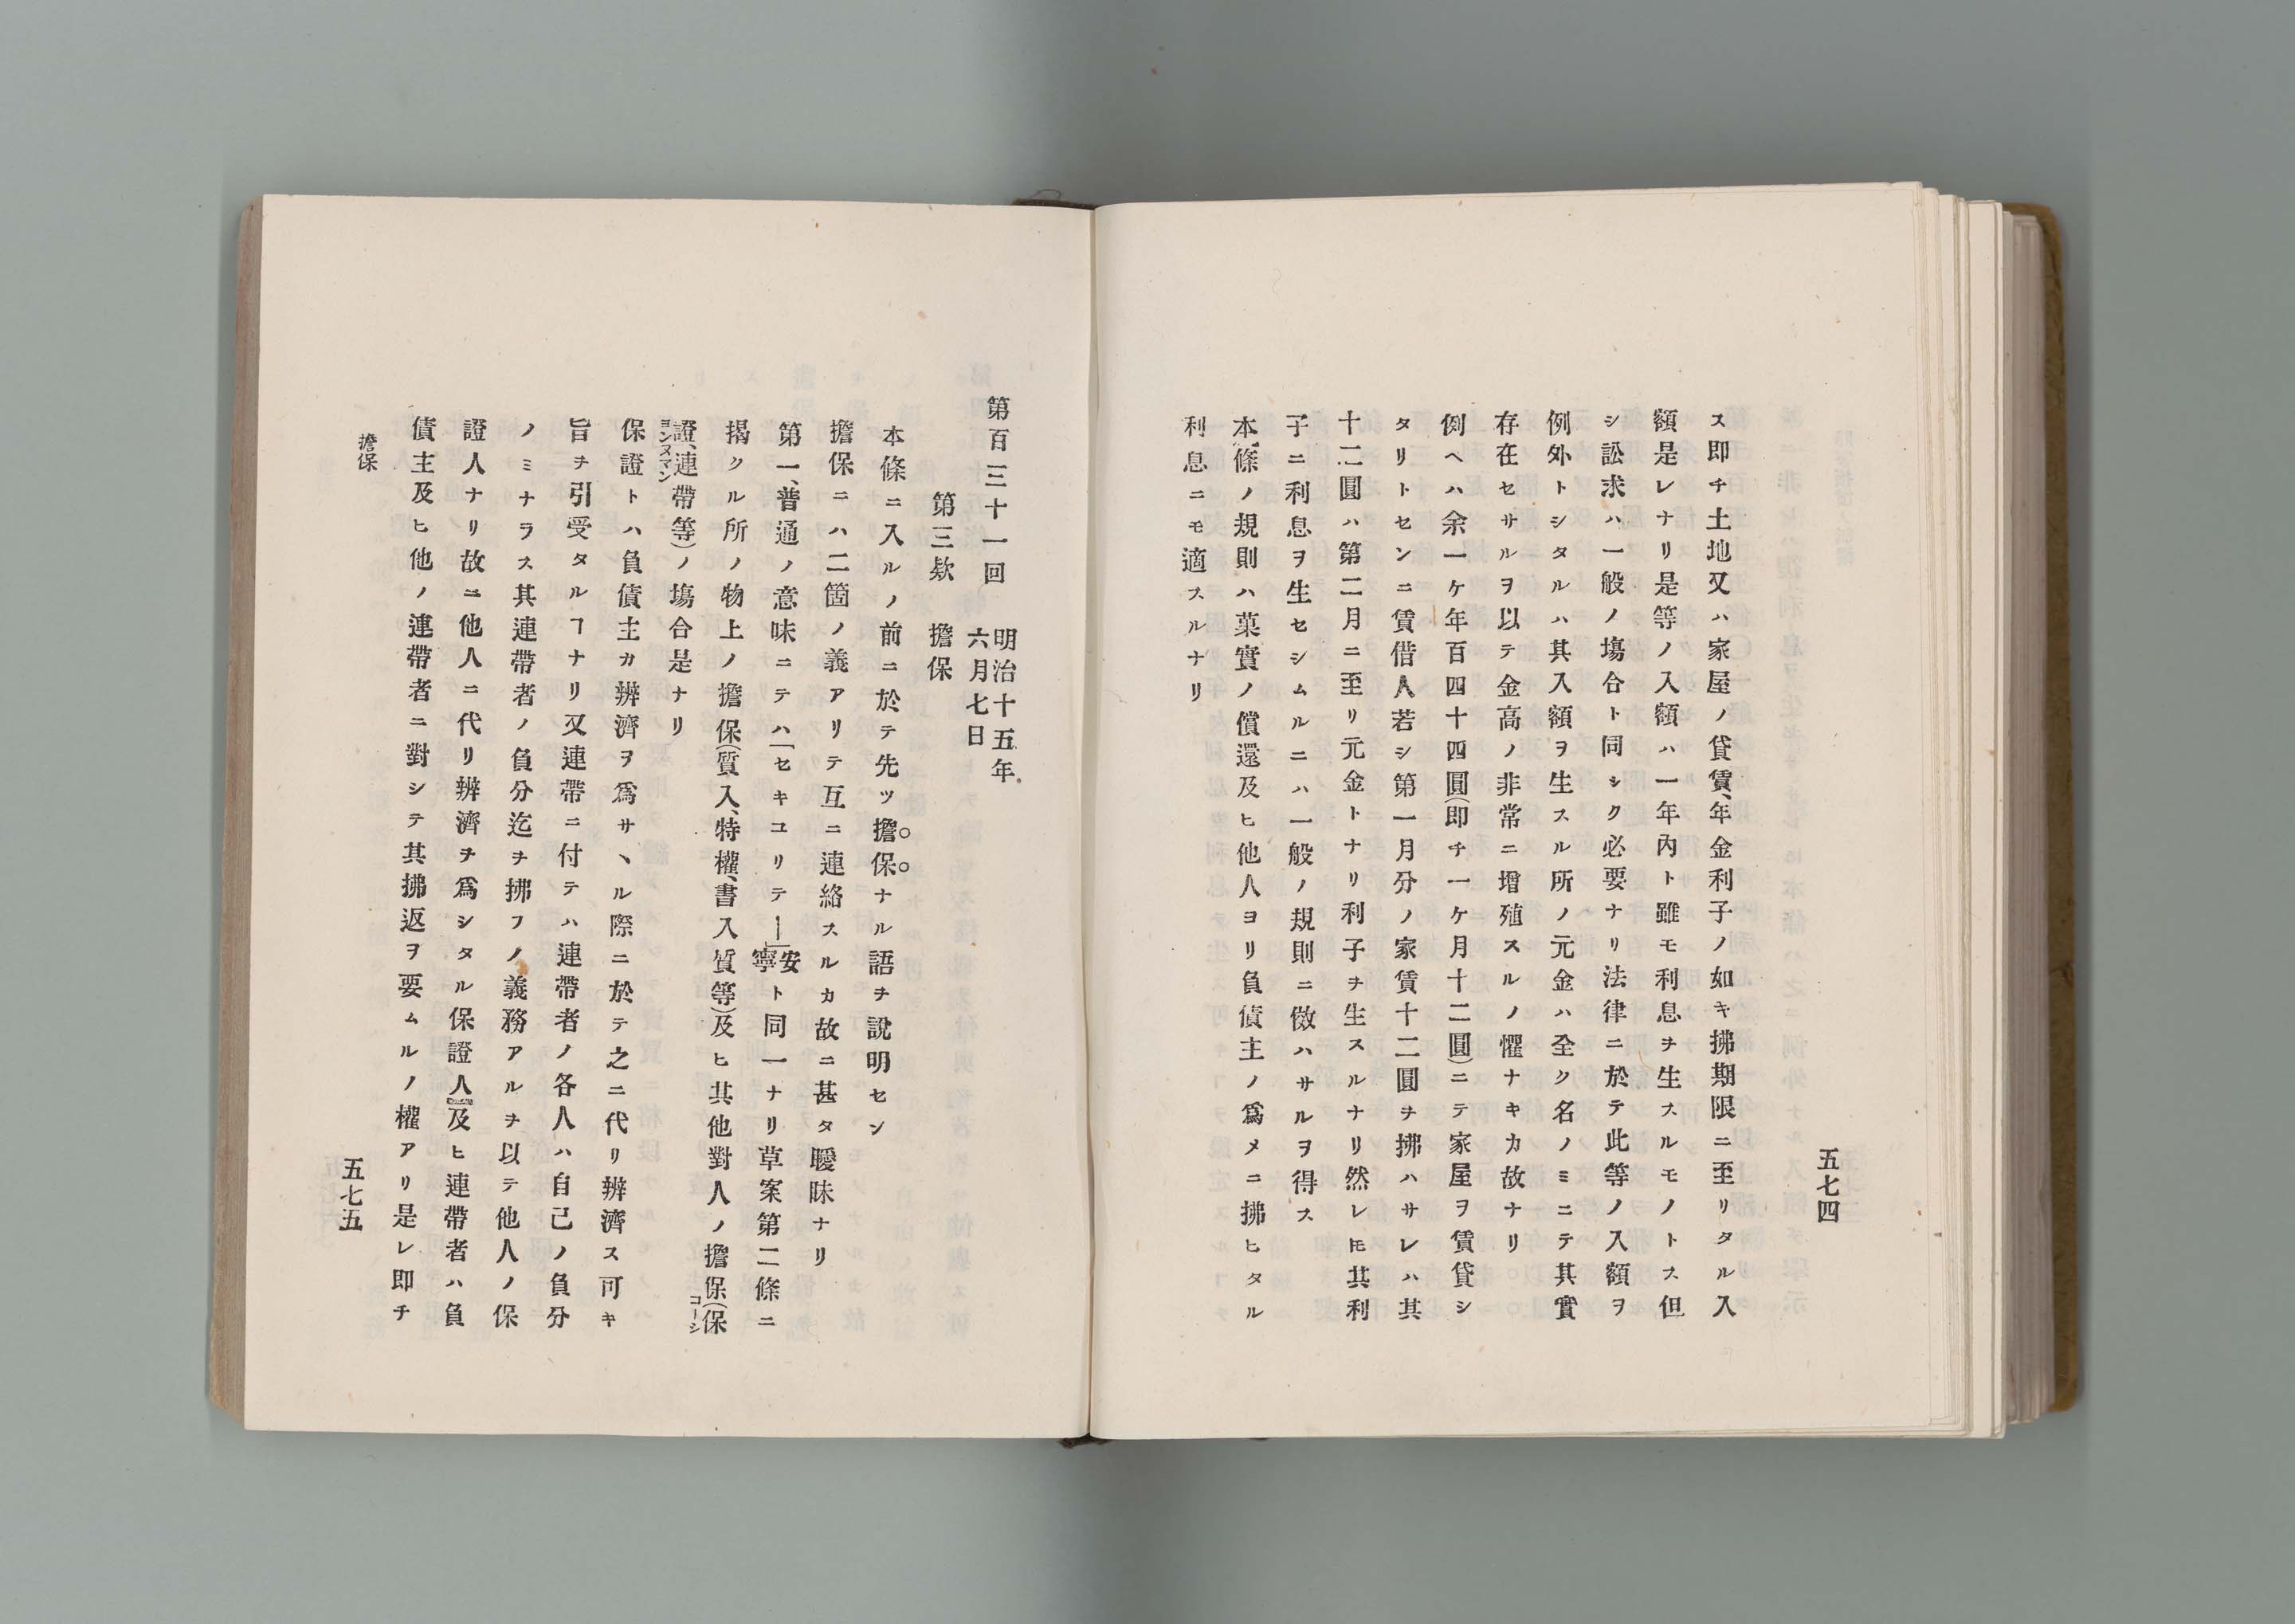 ス即チ土地又ハ家屋ノ貸賃、年金利子ノ如キ拂期限ニ至リタル入
額是レナリ是等ノ入額ハ一年內ト雖モ利息ヲ生スルモノトス但
シ訟求ハ一般ノ塲合ト同シク必要ナリ法律ニ於テ此等ノ入額ヲ
例外トシタルハ其入額ヲ生スル所ノ元金ハ全ク名ノミニテ其實
存在セサルヲ以テ金高ノ非常ニ增殖スルノ懼ナキカ故ナリ
例ヘハ余一ケ年百四十四圓(即チ一ケ月十二圓)ニテ家屋ヲ賃貸シ
タリトセンニ賃借人若シ第一月分ノ家賃十二圓ヲ拂ハサレハ其
十二圓ハ第二月ニ至リ元金トナリ利子ヲ生スルナリ然レ𪜈其利
子ニ利息ヲ生セシムルニハ一般ノ規則ニ倣ハサルヲ得ス
本條ノ規則ハ菓實ノ償還及ヒ他人ヨリ負債主ノ爲メニ拂ヒタル
利息ニモ適スルナリ
五七四
第百三十一回 明治十五年六月七日
第三欵 擔保
本條ニ入ルノ前ニ於テ先ツ擔保ナル語ヲ說明セン
擔保ニハ二箇ノ義アリテ互ニ連絡スルカ故ニ甚タ曖昧ナリ
第一、普通ノ意味ニテハ「セキユリテー」安寧ト同一ナリ草案第二條ニ
揭クル所ノ物上ノ擔保(質入、特權、書入質等)及ヒ其他對人ノ擔保(保
證、連帶等)ノ塲合是ナリ
コーシヨンヌマン
保證トハ負債主カ辨濟ヲ爲サヽル際ニ於テ之ニ代リ辨濟ス可キ
旨ヲ引受タルヿナリ又連帶ニ付テハ連帶者ノ各人ハ自己ノ負分
ノミナラス其連帶者ノ負分迄ヲ拂フノ義務アルヲ以テ他人ノ保
證人ナリ故ニ他人ニ代リ辨濟ヲ爲シタル保證人及ヒ連帶者ハ負
債主及ヒ他ノ連帶者ニ對シテ其拂返ヲ要ムルノ權アリ是レ即チ
擔保
五七五